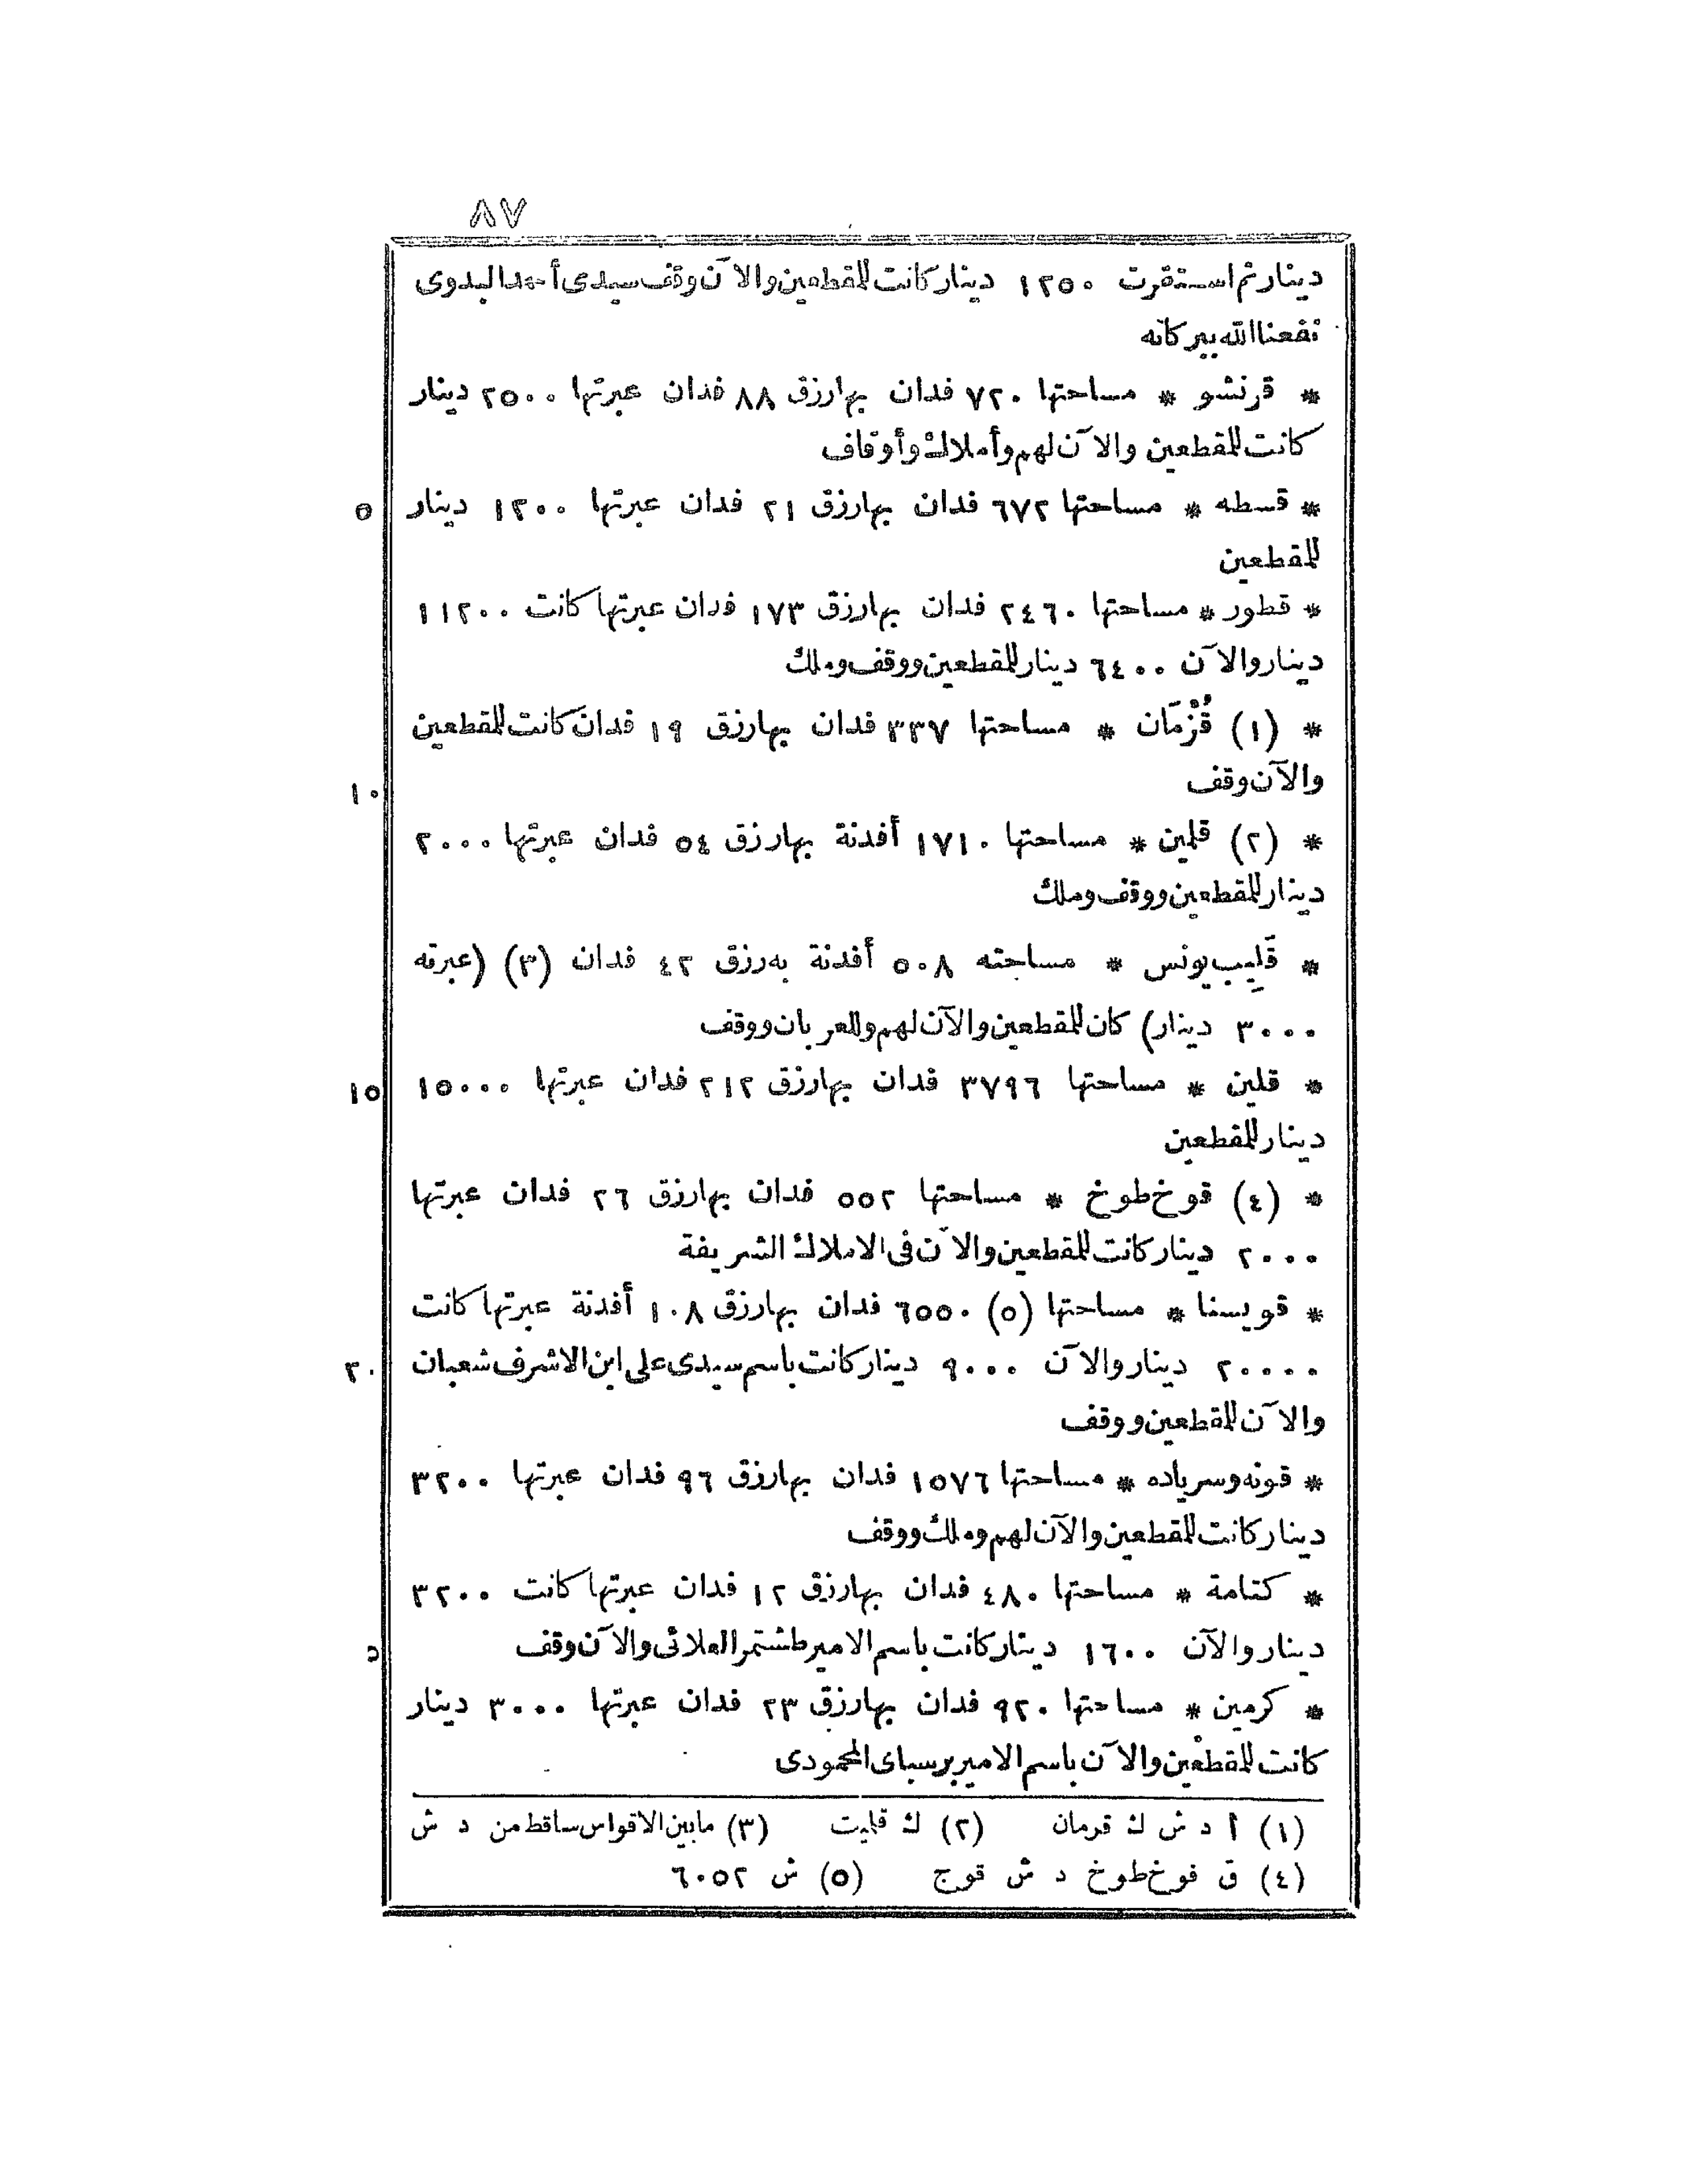 ٨٧
دينار ثم استقرت ١٢٥٠ دينار كانت للمقطعين والآن وقف سيدى أحمد البدوى
نفعنا الله ببركاته
* قرنشو * مساحتها ٧٢٠ فدان بها رزق ٨٨ فدان عبرتها ٢٥٠٠ دينار
كانت للمقطعين والآن لهم وأملاك وأوقاف
* قسطه * مساحتها ٦٧٢ فدان بها رزق ٢١ فدان عبرتها ١٢٠٠ دينار ٥
للمقطعين
* قطور * مساحتها ٢٤٦٠ فدان بها رزق ١٧٣ فدان عبرتها كانت ١١٢٠٠
دينار والآن ٦٤٠٠ دينار للمقطعين ووقف وملك
* (١) قُزْمَان * مساحتها ٣٣٧ فدان بها رزق ١٩ فدان كانت للمقطعين
والآن وقف ١٠
* (٢) قلمين * مساحتها ١٧١٠ أفدنة بها رزق ٥٤ فدان عبرتها ٢٠٠٠
دينار للمقطعين ووقف وملك
* قَلِيب يونس * مساحته ٥٠٨ أفدنة به رزق ٤٢ فدان (٣) (عبرته
٣٠٠٠ دينار) كان للمقطعين والآن لهم وللعربان ووقف
* قلين * مساحتها ٣٧٩٦ فدان بها رزق ٢١٢ فدان عبرتها ١٥٠٠٠ ١٥
دينار للمقطعين
* (٤) قوخ طوخ * مساحتها ٥٥٢ فدان بها رزق ٢٦ فدان عبرتها
٢٠٠٠ دينار كانت للمقطعين والآن فى الاملاك الشريفة
* قويسنا * مساحتها (٥) ٦٥٥٠ فدان بها رزق ١٠٨ أفدنة عبرتها كانت
٢٠٠٠٠ دينار والآن ٩٠٠٠ دينار كانت باسم سيدى على ابن الاشرف شعبان ٢٠
والآن للمقطعين ووقف
* قونه وسرياده * مساحتها ١٥٧٦ فدان بها رزق ٩٦ فدان عبرتها ٣٢٠٠
دينار كانت للمقطعين والآن لهم وملك ووقف
* كتامة * مساحتها ٤٨٠ فدان بها رزق ١٢ فدان عبرتها كانت ٣٢٠٠
دينار والآن ١٦٠٠ دينار كانت باسم الامير طشتمر العلائى والآن وقف
* كرمين * مساحتها ٩٢٠ فدان بها رزق ٢٣ فدان عبرتها ٣٠٠٠ دينار
كانت للمقطعين والآن باسم الامير برسباى المحمودى
(١) أ د ش ك قرمان (٢) ك قليت (٣) ما بين الاقواس ساقط من د ش
(٤) ق فوخ طوخ د ش قوج (٥) ش ٦٠٥٢